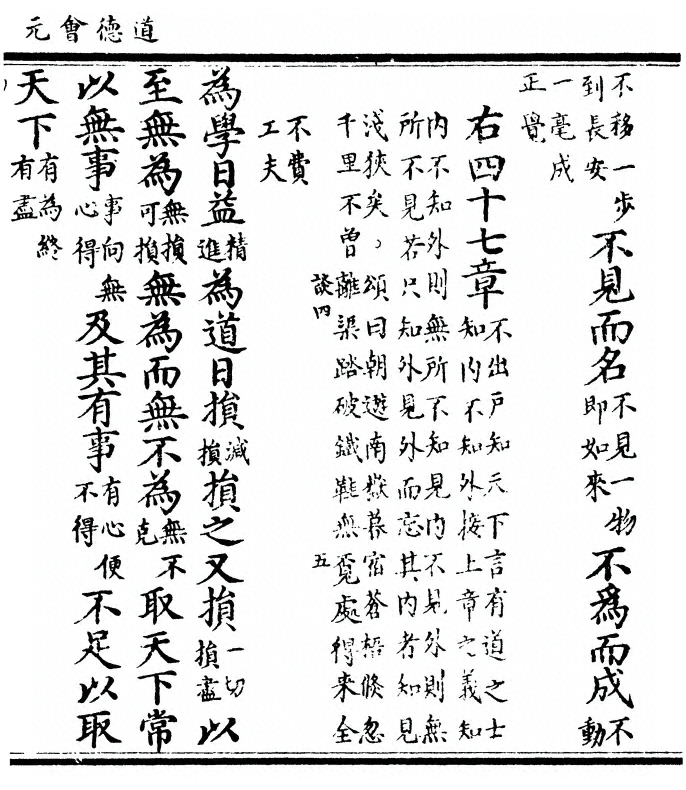 道德會元
不移一步到長安不見而名不見一物即如來不爲而成不動
一毫成正覺
右四十七章不出户知天下言有道之士知内不知外接上章之義知
内不知外則無所不知見内不見外則無所不見若只知外見外而忘其内者知見
淺狹矣、頌曰朝遊南嶽暮宿蒼梧倐忽千里不曾離渠踏破鐵鞋無覓處得來全
五
不費工夫
為學日益精進為道日損減損損之又損一切損盡以
至無為無損可損無為而無不為無不克取天下常
以無事事向無心得及其有事有心便不得不足以取
天下有為終有盡